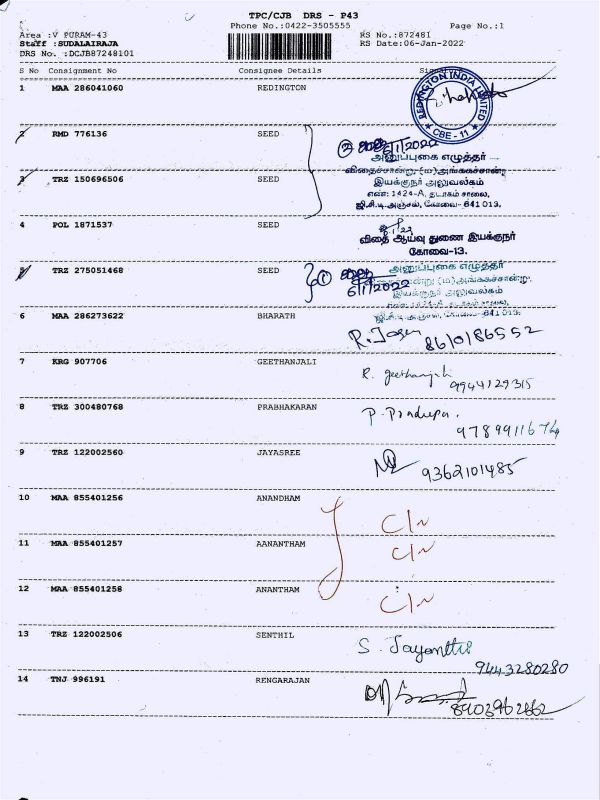 TPC/CJB DRS - P43
Phone No.:0422-3505555 Page No.:1
Area :V PURAM-43 RS No.:872481
Staff :SUDALAIRAJA RS Date:06-Jan-2022
DRS No. :DCJB87248101
S No Consignment No Consignee Details
1 MAA 286041060 REDINGTON
REDINGTON INDIA LIMITED
CBE - 11
2 RMD 776136 SEED
6/1/2022
அனுப்புகை எழுத்தர்
விதைச்சான்று (ம) அங்ககச்சான்று
3 TRZ 150696506 SEED இயக்குநர் அலுவலகம்
எண்: 1424-A, தடாகம் சாலை,
ஜி.சி.டி.அஞ்சல், கோவை- 641 013.
4 POL 1871537 SEED
விதை ஆய்வு துணை இயக்குநர்
கோவை-13.
5 TRZ 275051468 SEED ① அனுப்புகை எழுத்தர்
6/1/2022
இயக்குநர் அலுவலகம்
ஜி.சி.டி.அஞ்சல், கோவை- 641 013.
6 MAA 286273622 BHARATH
8610186552
7 KRG 907706 GEETHANJALI R. geethanjali
9944129315
8 TRZ 300480768 PRABHAKARAN
9789911674
9 TRZ 122002560 JAYASREE 9362101485
10 MAA 855401256 ANANDHAM
11 MAA 855401257 AANANTHAM
12 MAA 855401258 ANANTHAM
13 TRZ 122002506 SENTHIL S. Jayanthi
9443280280
14 TNJ 996191 RENGARAJAN
8903962662